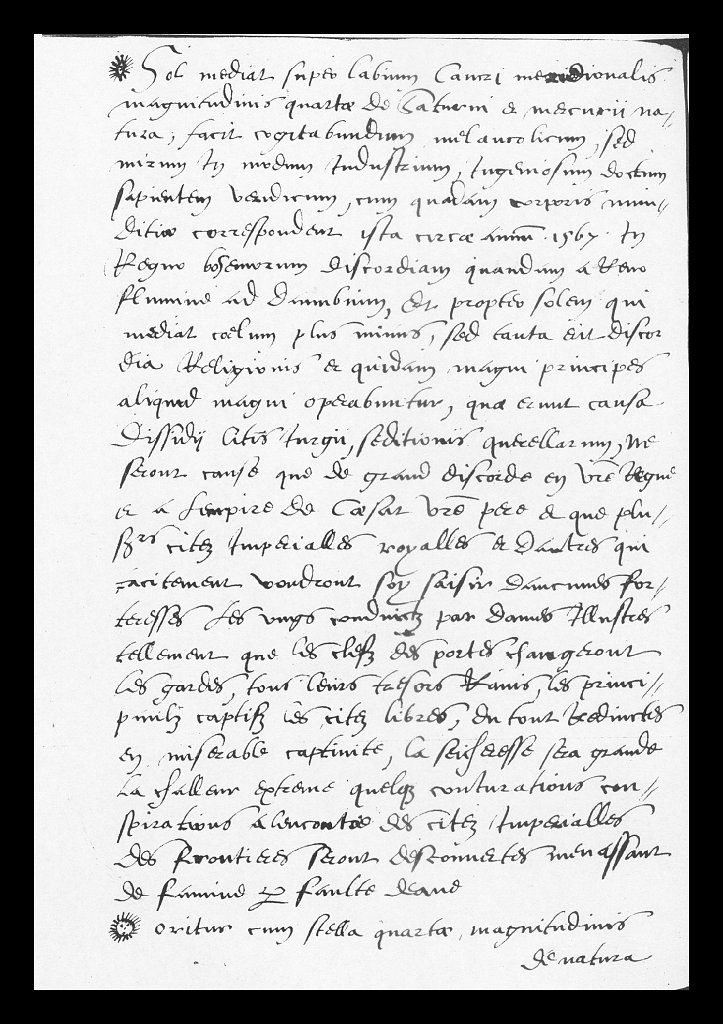 Sol mediat supero labium Cancri meridionalis
magnitudinis quartæ de Saturni et mercurii na-
tura, facit cogitabundum melancolicum, sed
mirum In modum Industrium, Ingeniosum doctum
sapientem veridicum, cum quadam corporis mun-
ditiæ correspondent ista circa annũ .1567. In
Regno bohemorum discordiam quandam a Reno
flumine ad Danubium, Et propter solem qui
mediat cœlum plus minus, sed tanta erit discor
dia Religionis et quidam magni principes
aliquid magni operabuntur, quæ erunt causa
Dissidij litis Iurgii, seditionis querellarum, Ne
seront cause que de grand discorde en vrẽ Regne
et a Lempire de Cæsar vrẽ pere et que plu-
srs citez Imperialles royalles et dautres qui
tacitement voudront soy saisir daucunes for-
teresses Les ungs conduictz par dames Illustres
tellement que les clefz des portes changeront
les gardes, tous leurs tresors Ranis, les princi-
paulx captifz les citez libres, du tout Reduictes
en miserable captivite, la seicheresse sera grande
La challeur extreme quelq coniurations con-
spirations alencontre des citez Imperialles
des frontieres seront descouvertes menassant
de famine p faulte deaue
oritur cum stella quartæ magnitudinis
de natura